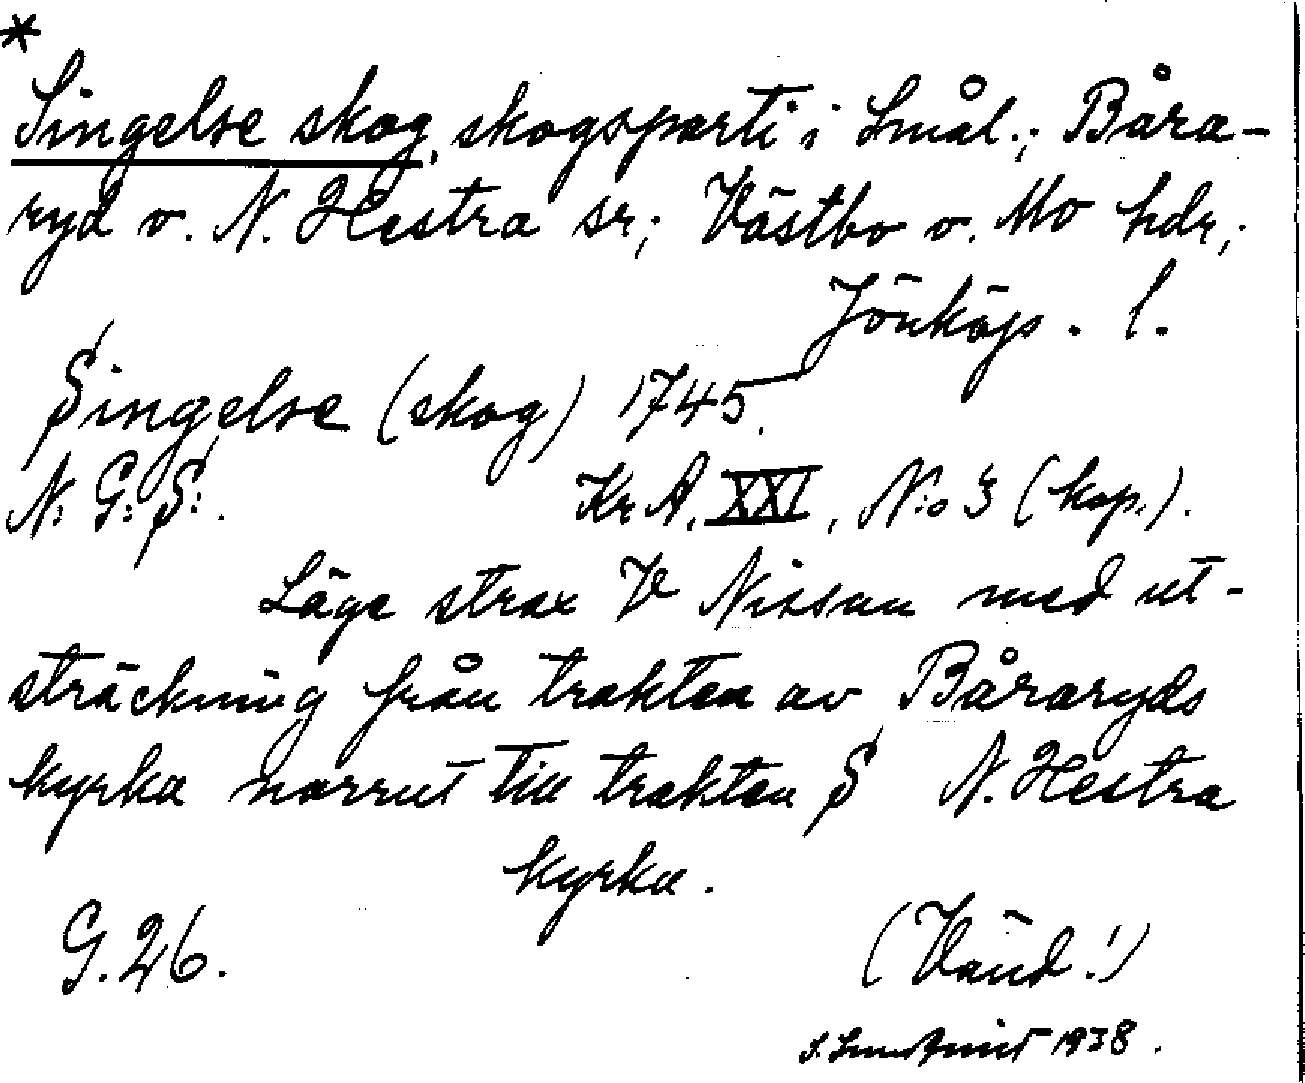 *
Singelse skog, skogsparti i Smål.; Båra-
ryd o. N. Hestra sr; Västbo o. Mo hdr;
Jönköps. l.
Singelse (skog) 1745.
N: G: S:.
Kr A. XXI, N:o 3 (kop.).
Läge strax V Nissan med ut-
sträckning från trakten av Båraryds
kyrka norrut till trakten S N. Hestra
kyrka.
G. 26.
(Vänd!)
1938.